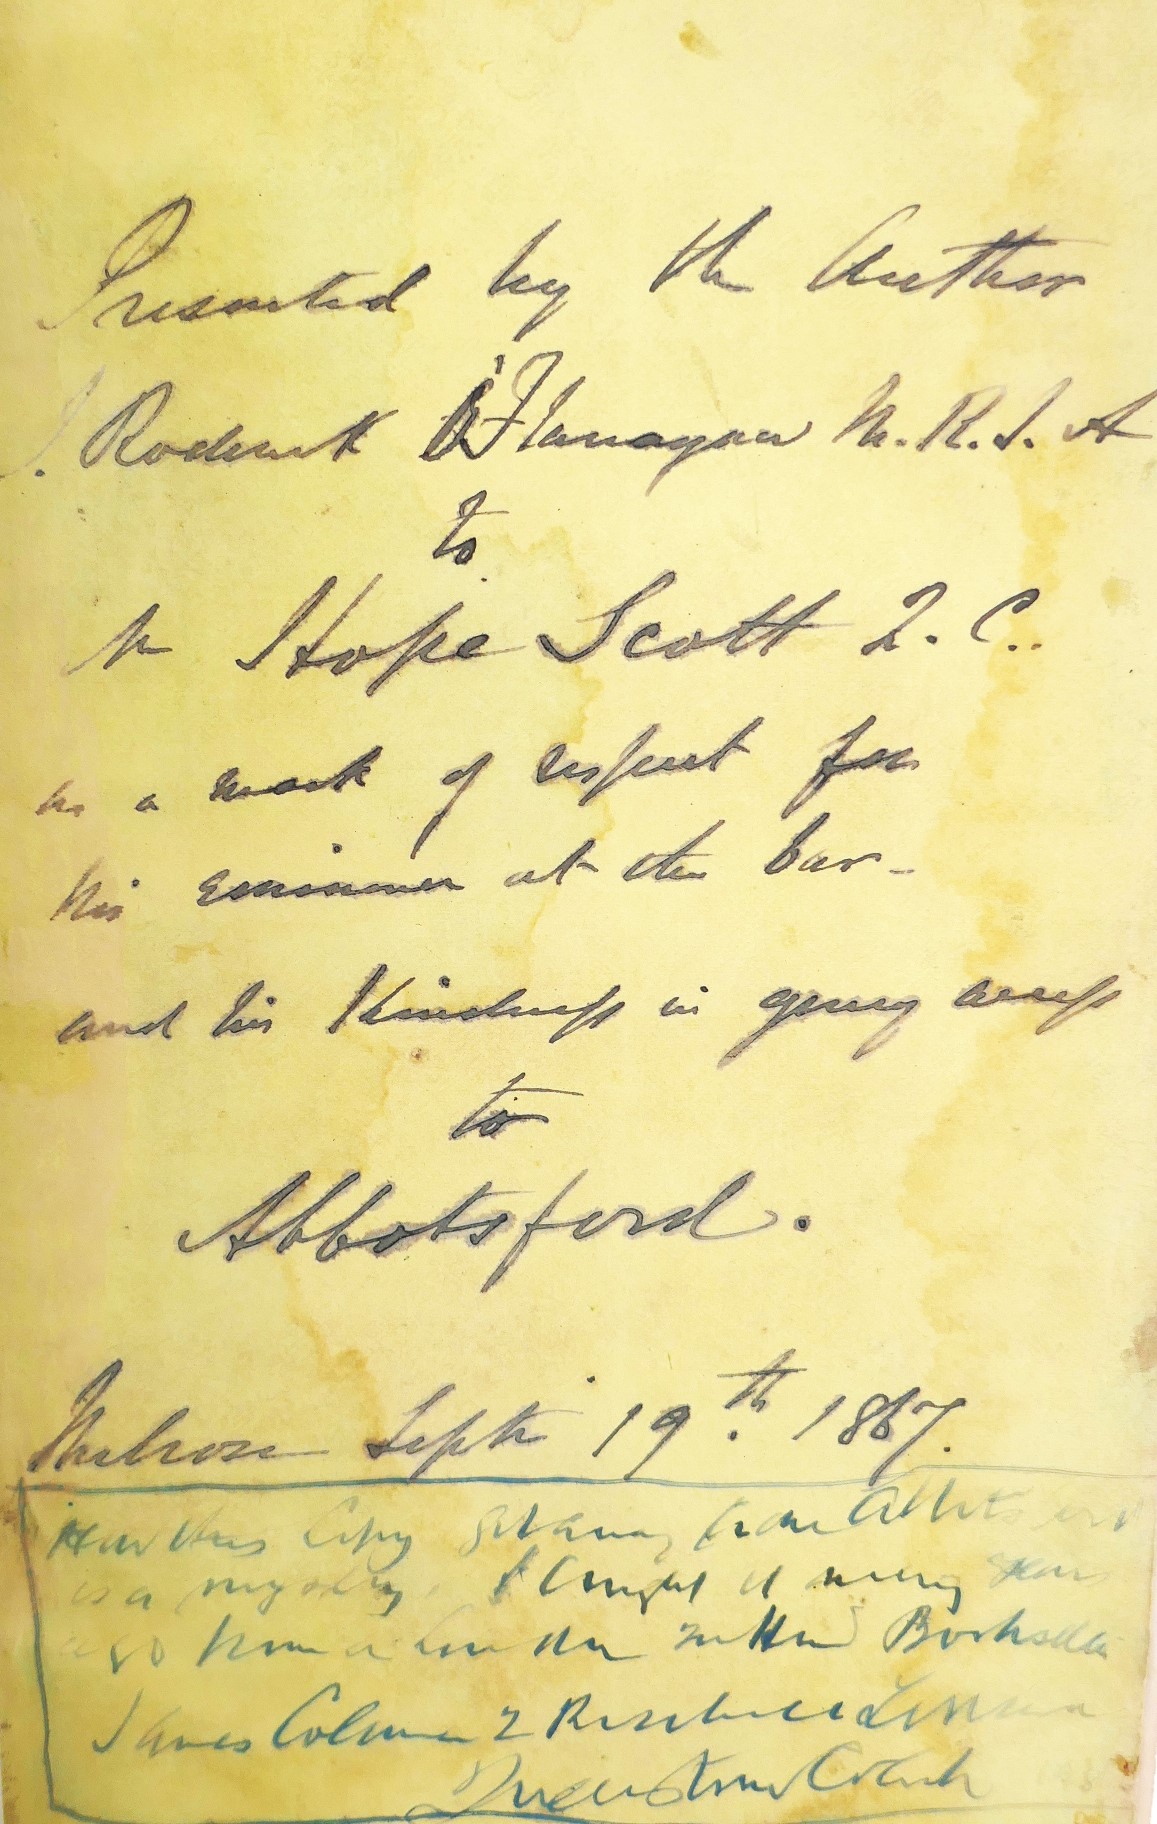 Presented by the Author
J. Roderick O'Flanagan M.R.I.A
to
Mr Hope Scott Q.C.
as a mark of respect for
his eminence at the bar-
and his Kindness in giving access
to
Abbotsford.
Melrose Septr 19th. 1867.
How this Copy got away from Abbotsford
is a mystery. I bought it many years
ago from a London Bookseller
James Coleman